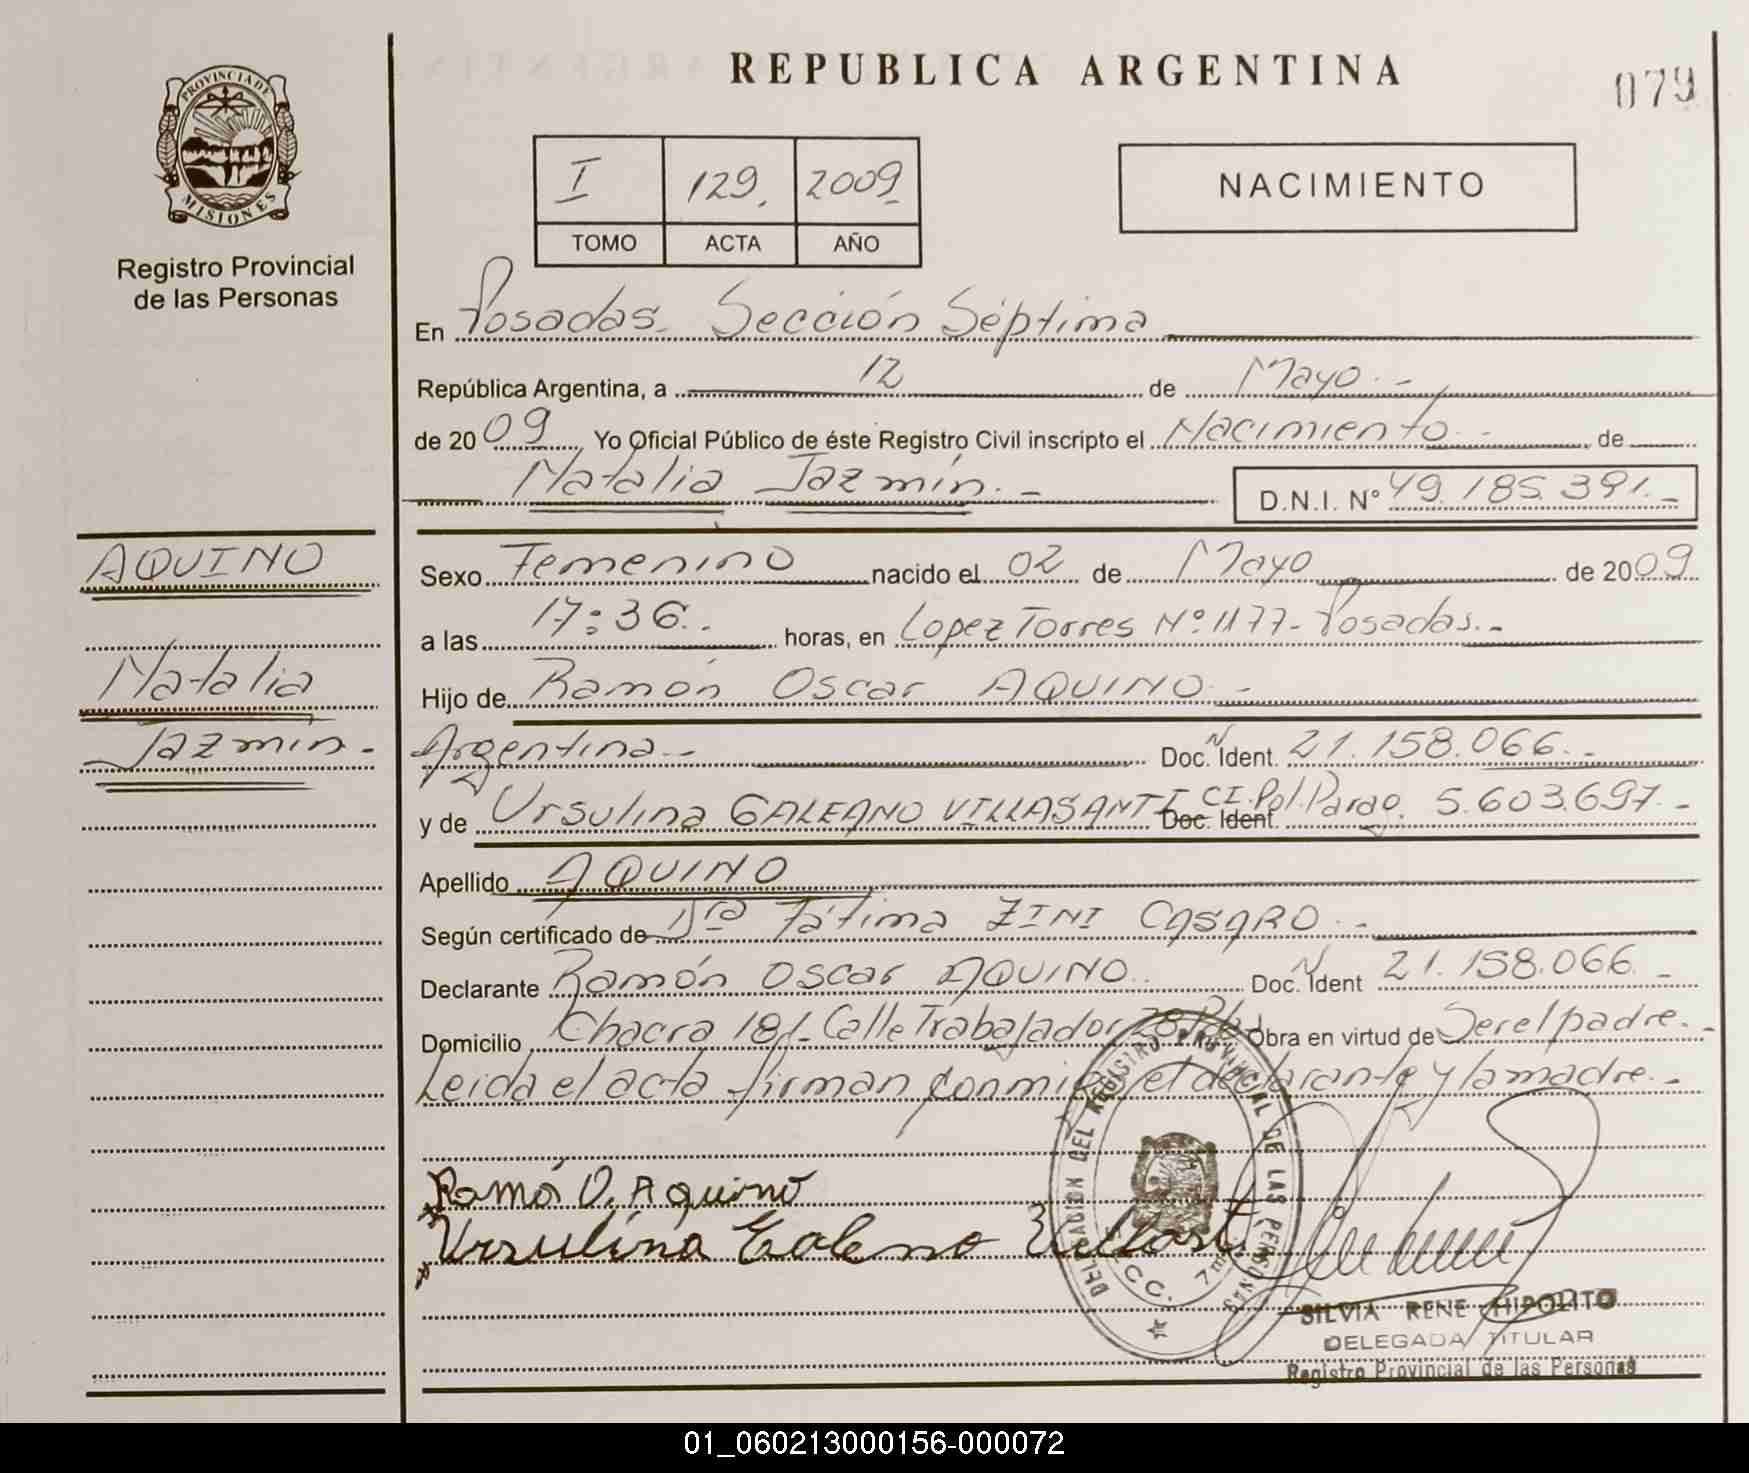 REPUBLICA ARGENTINA
079
PROVINCIA DE
MISIONES
Registro Provincial
de las Personas
I 129. 2009
TOMO ACTA AÑO
NACIMIENTO
En Posadas. Sección Séptima
República Argentina, a 12 de Mayo.-
de 2009 Yo Oficial Público de éste Registro Civil inscripto el Nacimiento - de
Natalia Jazmín.-
D.N.I. Nº 49.185.391.-
AQUINO
Natalia
Jazmín.-
Sexo Femenino nacido el 02 de Mayo de 2009
a las 17:36.. horas, en Lopez Torres Nº 1177- Posadas.-
Hijo de Ramón Oscar AQUINO.-
Argentina.- Doc. N Ident. 21.158.066.-
y de Ursulina GALEANO VILLASANTE Doc. Ident. CI.Pol.Parag. 5.603.697.-
Apellido AQUINO
Según certificado de Dra Fátima ZINI CASARO.-
Declarante Ramón Oscar AQUINO.. Doc. N Ident 21.158.066.-
Domicilio Chacra 181- Calle Trabajador 28 Obra en virtud de Ser el padre.-
Leida el acta firman conmigo el declarante y la madre.-
Ramó O. Aquino
Ursulina Galeno
DELEGACION DEL REGISTRO PROVINCIAL DE LAS PERSONAS
SILVIA RENE HIPOLITO
DELEGADA TITULAR
Registro Provincial de las Personas
01_060213000156-000072